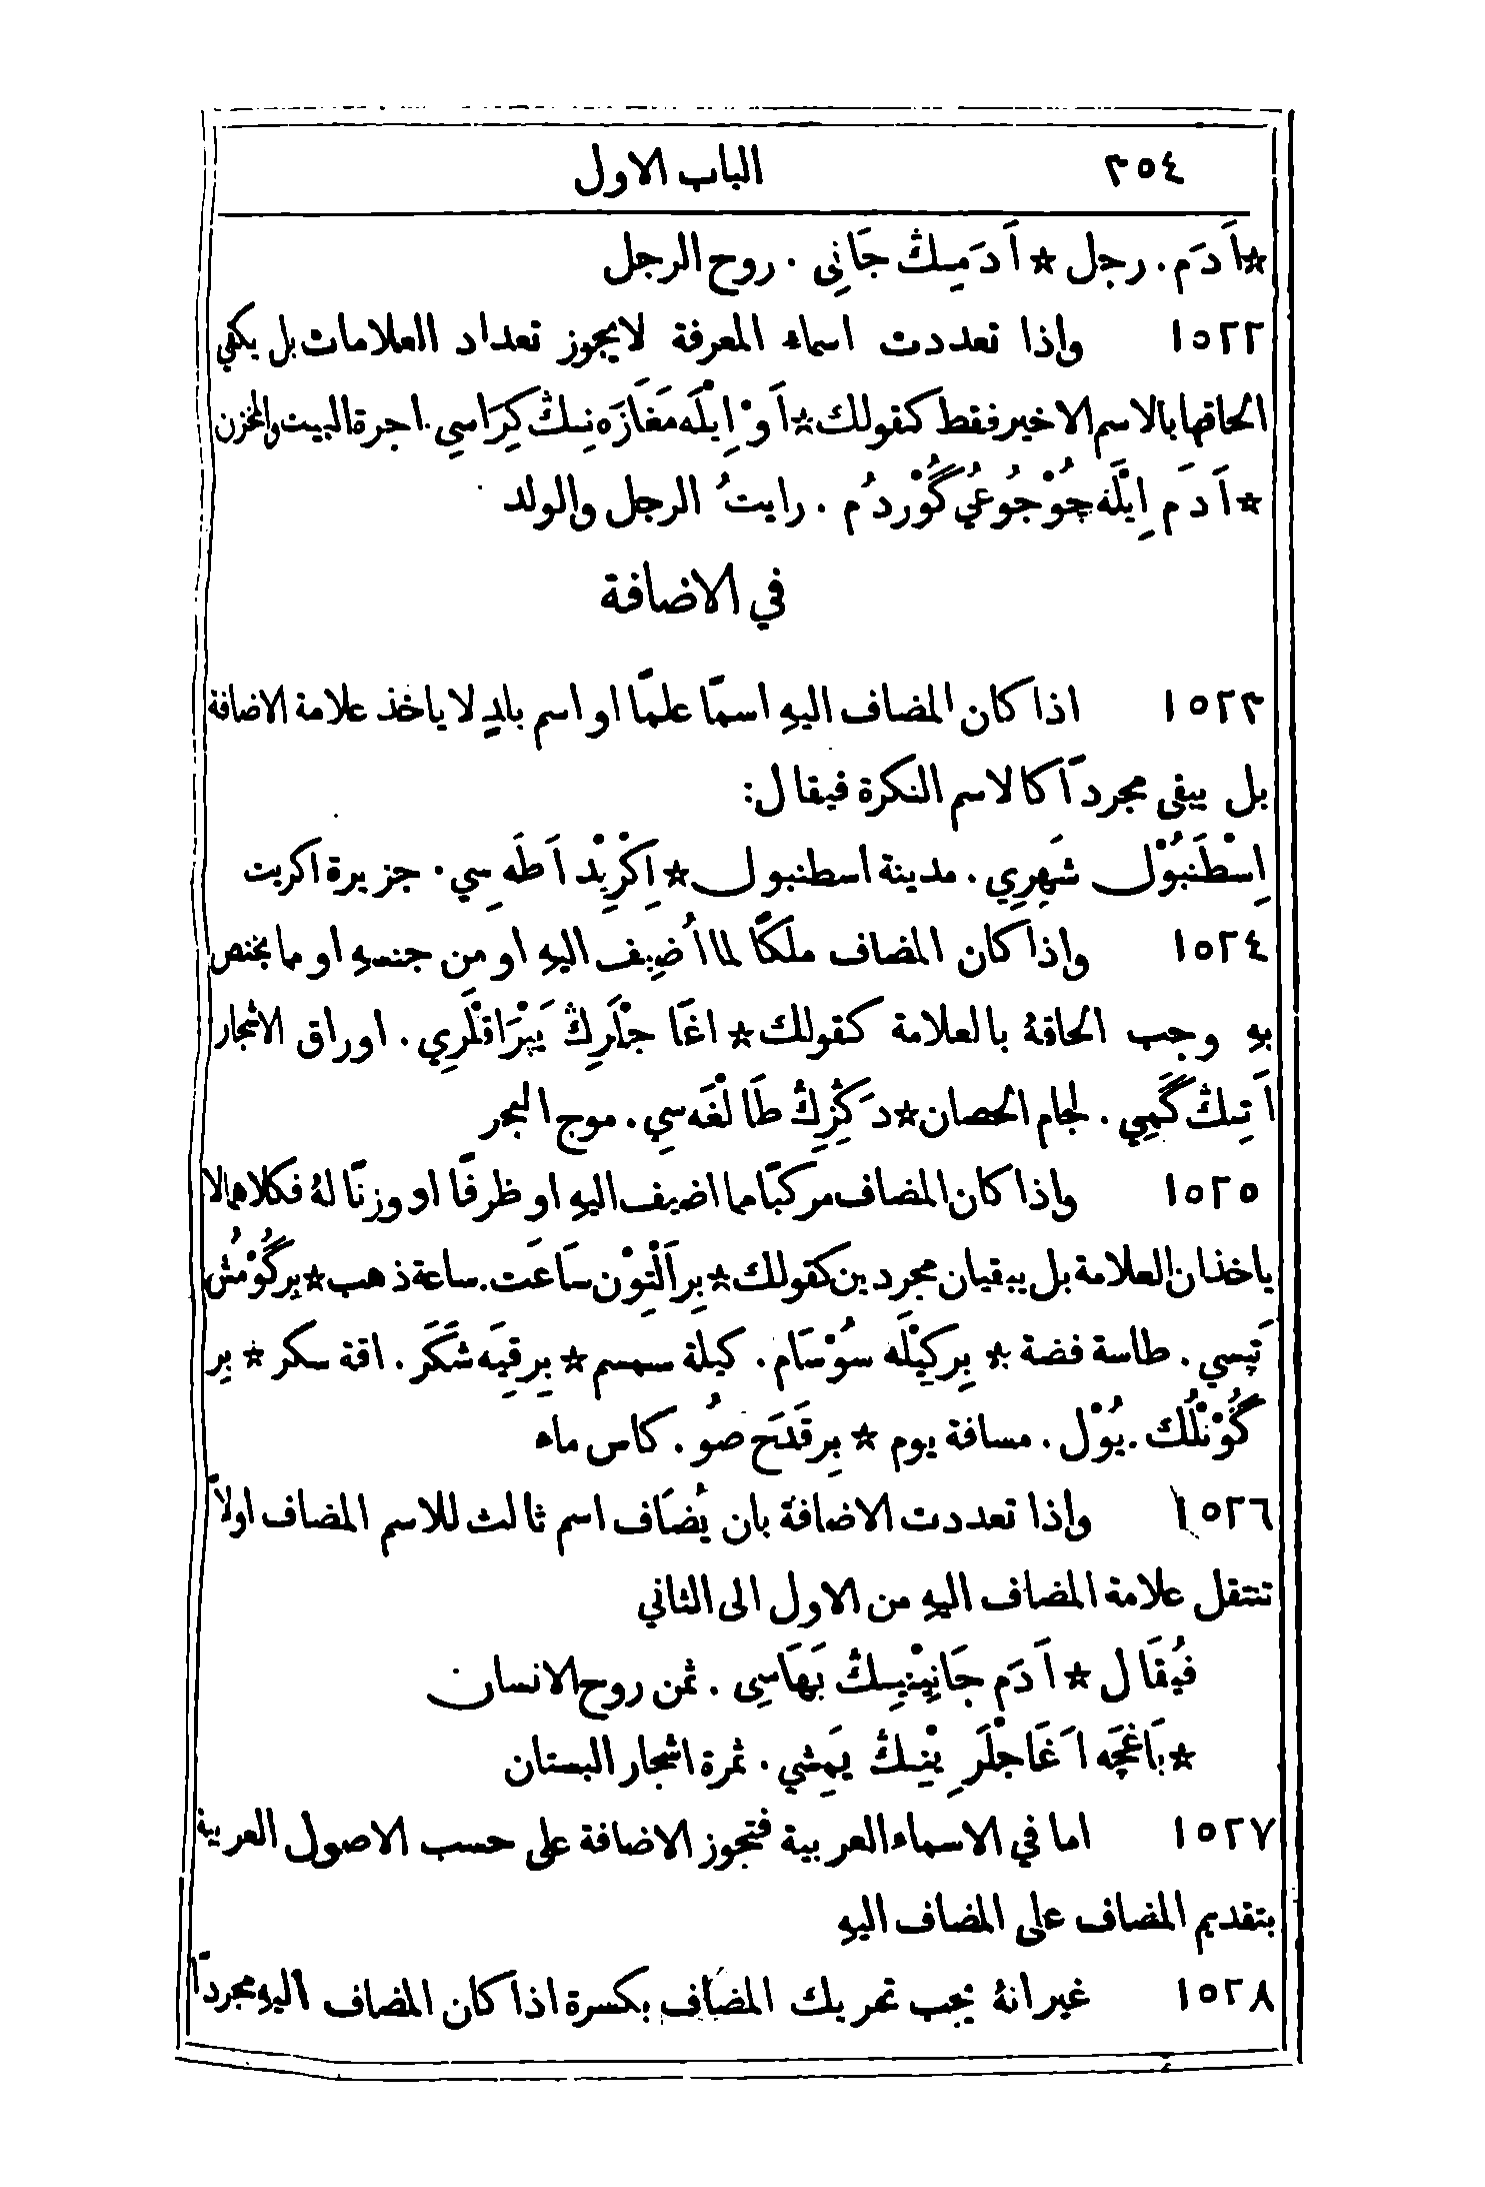 ٣٥٤ الباب الاول
★اَدَم. رجل ★ اَدَمِيڭ جَانِی . روح الرجل
١٥٢٢ واذا تعددت اسماء المعرفة لايجوز تعداد العلامات بل يكفي
الحاقها بالاسم الاخير فقط كقولك ★ اَوْ اِيْلَه مَغَازَه نِڭ كِرَاسِي. اجرة البيت والمخزن
★ اَدَم اِيْلَه چُوْجُوغِي گُوْردُم . رايتُ الرجل والولد
في الاضافة
١٥٢٣ اذا كان المضاف اليهِ اسمًا علمًا او اسم بلدٍ لا ياخذ علامة الاضافة
بل يبقى مجردًا كالاسم النكرة فيقال:
اِسْطَنبُوْل شَهِرِي . مدينة اسطنبول ★ اِكْرِيْد اَطَه سِي . جزيرة اكريت
١٥٢٤ واذا كان المضاف ملكًا لما أُضِيف اليهِ او من جنسهِ او مما يختص
بهِ وجب الحاقهُ بالعلامة كقولك ★ اغَا جْلَرِڭ يَپْرَاقْلَرِي . اوراق الاشجار
اَتِڭ گَمِي . لجام الحصان ★ دَڭِزِڭ طَالْغَه سِي . موج البحر
١٥٢٥ واذا كان المضاف مركبًا مما اضيف اليهِ او ظرفًا او وزنًا لهُ فكلاهما لا
ياخذان العلامة بل يبقيان مجردين كقولك ★ بِر اَلْتِوْن سَاعَت. ساعة ذهب ★ بِر گُوْمُش
تَپسي . طاسة فضة ★ بِر كِيْلَه سُوْسَام . كيلة سمسم ★ بِر قِيَه شَكَر . اقة سكر ★ بِر
گُوْنْلُك . يُوْل . مسافة يوم ★ بِر قَدَح صُو . كاس ماء
١٥٢٦ واذا تعددت الاضافة بان يُضَاف اسم ثالث للاسم المضاف اولاً
تنتقل علامة المضاف اليهِ من الاول الى الثاني
فيُقَال ★ اَدَم جَانِيْنِڭ بَهَاسِی . ثمن روح الانسان
★ بَاغْچَه اَغَاجْلَرِيْنِڭ يَمِشي . ثمرة اشجار البستان
١٥٢٧ اما في الاسماء العربية فتجوز الاضافة على حسب الاصول العربية
بتقديم المضاف على المضاف اليهِ
١٥٢٨ غير انهُ يجب تحريك المضاف بكسرة اذا كان المضاف اليهِ مجردًا